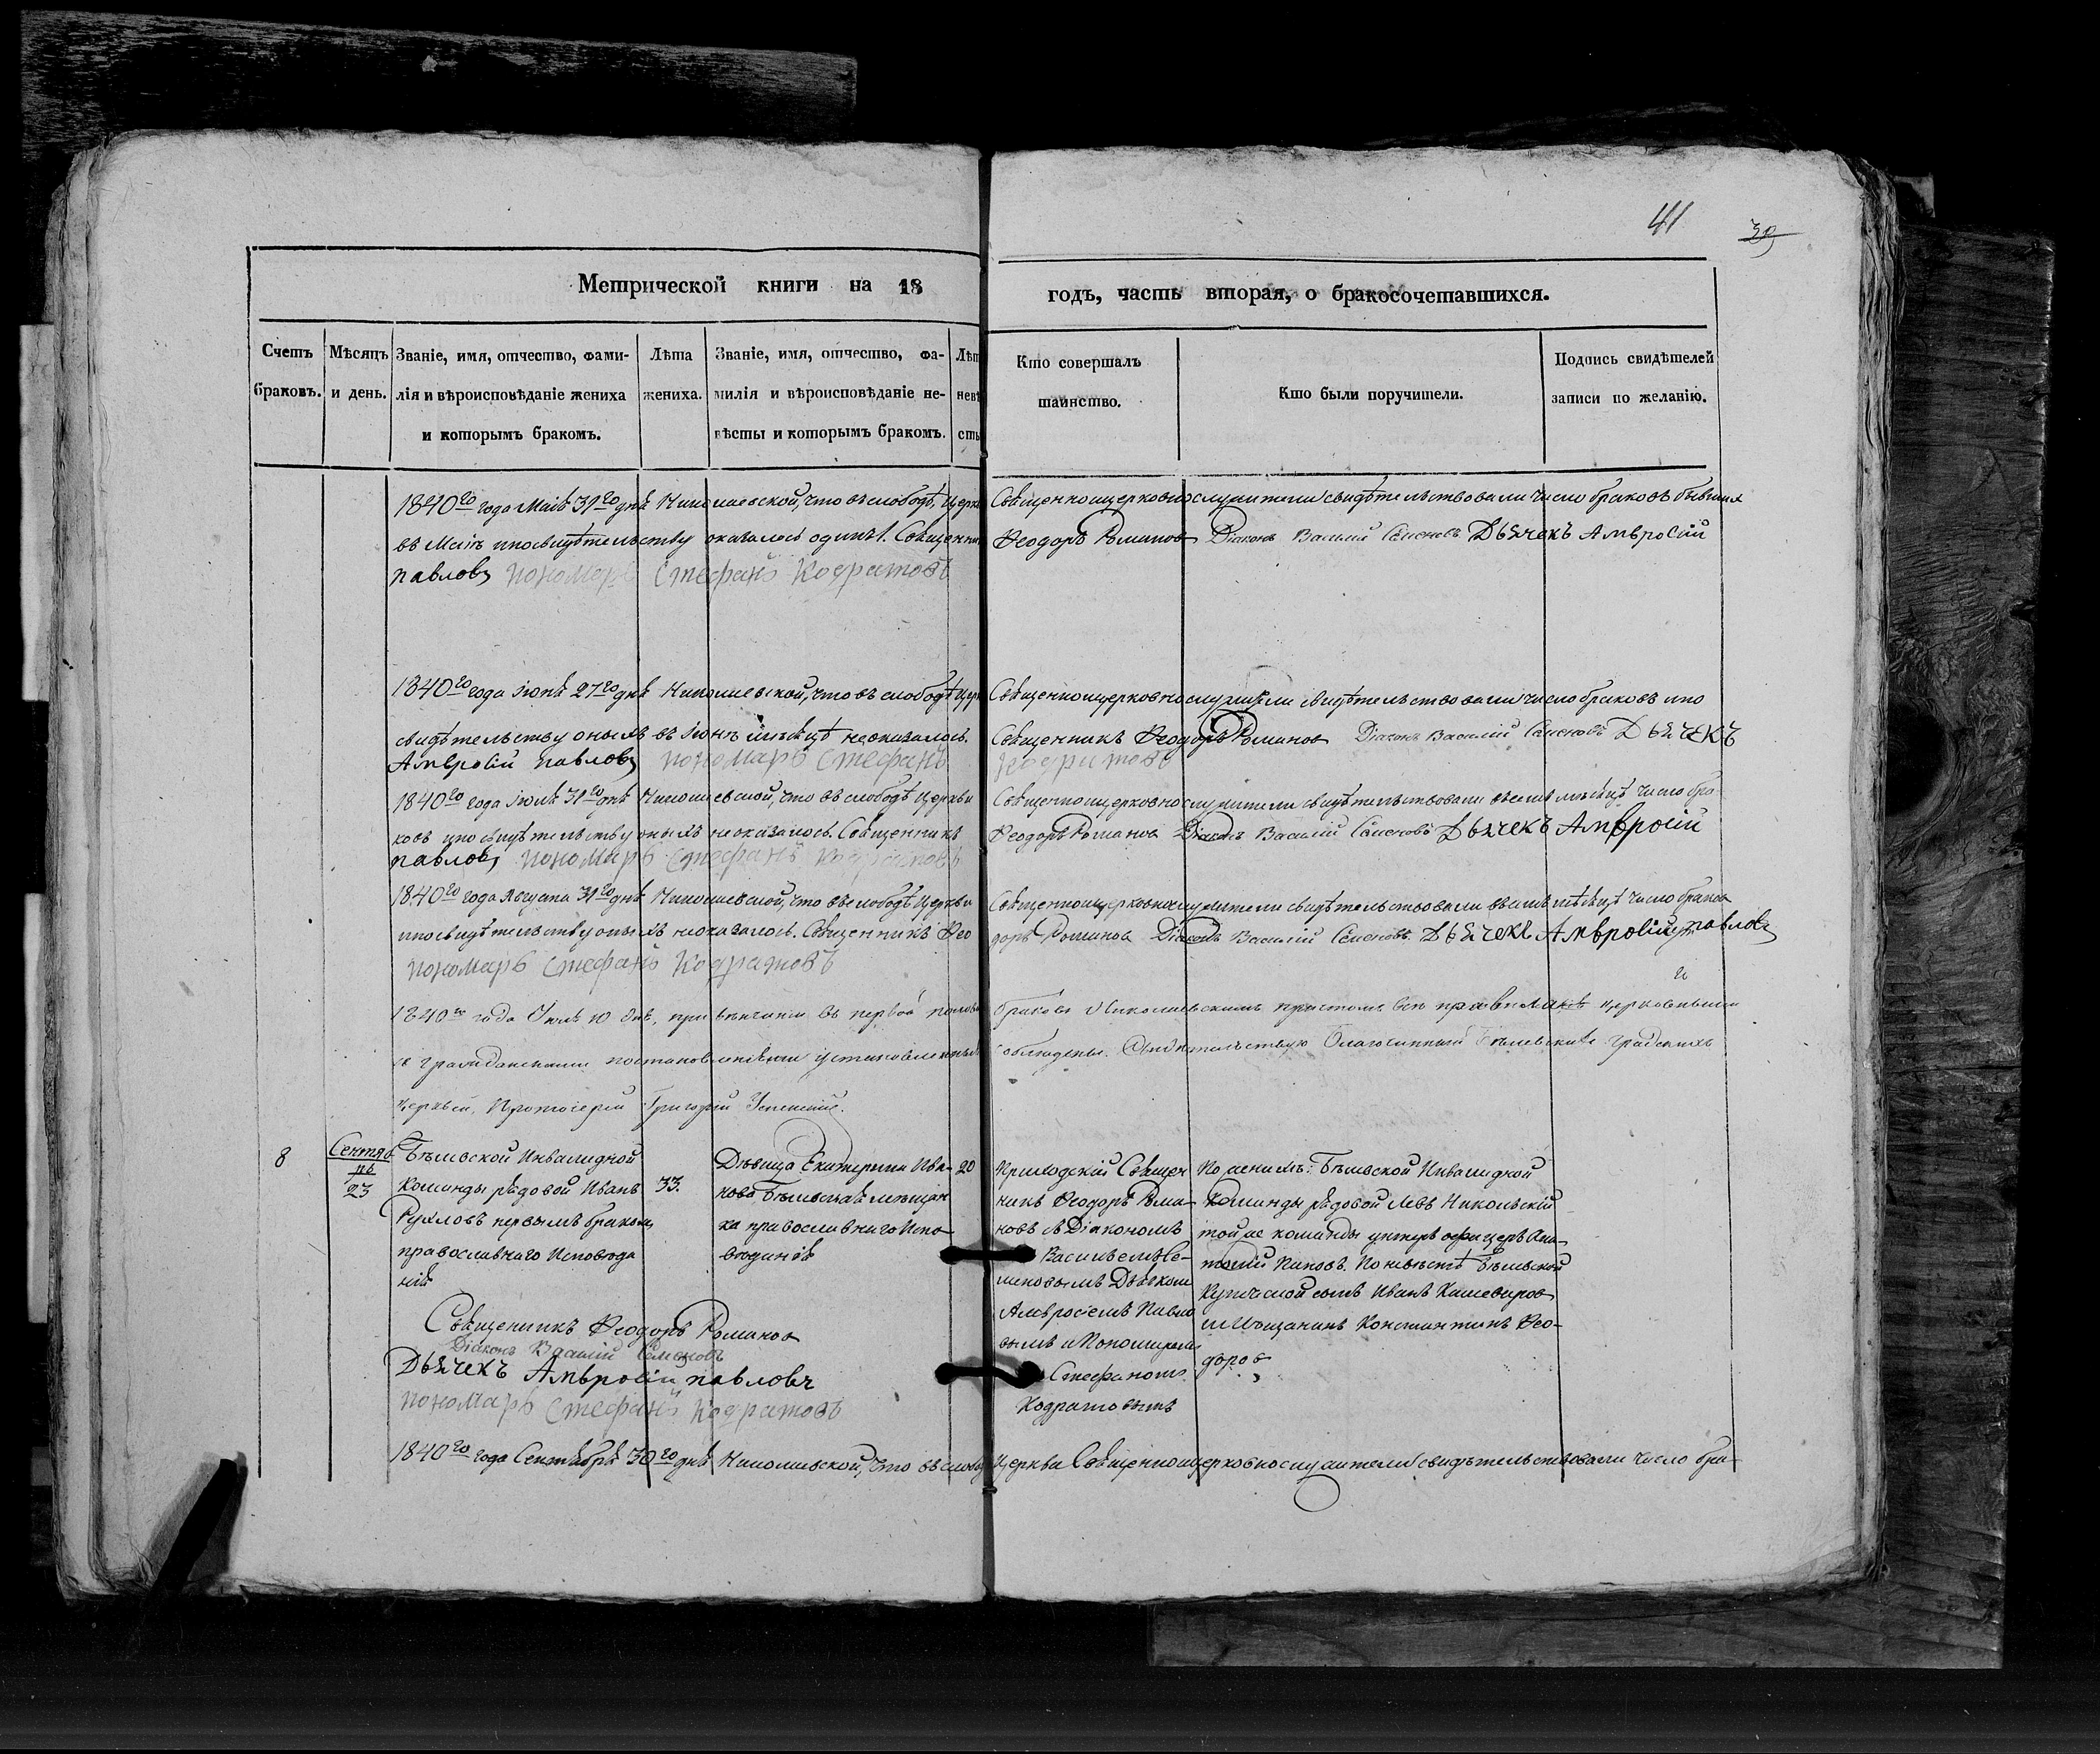 41
39
Метрической книги на 18 годъ, часть вторая, о бракосочетавшихся.
Счетъ браковъ.
Мѣсяцъ и день.
Званіе, имя, отчество, фами-
лія и вѣроисповѣданіе жениха
и которымъ бракомъ.
Лѣта
жениха.
Званіе, имя, отчество, фа-
милія и вѣроисповѣданіе не-
вѣсты и которымъ бракомъ.
Лѣт
невѣ
сты
Кто совершалъ
таинство.
Кто были поручители.
Подпись свидѣтелей
записи по желанію.
1840го года Маія 31го дня Николаевской, что въ слободѣ, церкв Священноицерковнослужители свидѣтельствовали число браковъ бывших
въ Маіѣ ипосвидѣтельству оказалось одинъ 1. Священник Феодоръ Романов Діаконъ Василій Семеновъ Дьячекъ Амвросій
павловъ пономарь Стефанъ Кодратовъ
1840го года Іюня 27го дня Николаевской, что въ слободѣ цер Священноицерковнослужители свидѣтельствовали число браковъ ипо
свидѣтельству оныхъ въ Іюнѣ мѣсяцѣ неоказалось. Священникъ Феодоръ Романов Діаконъ Василій Семеновъ Дьячекъ
Амвросій павловъ пономарь Стефанъ Кодратовъ
1840го года Іюля 31го дня Николаевской, что въ слободѣ церкви Священноицерковнослужители свидѣтельствовали въ семъ мѣсяцѣ число бра
ковъ ипосвидѣтельству оныхъ неоказалось. Священникъ Феодоръ Романов Діаконъ Василій Семеновъ Дьячекъ Амвросій
павловъ пономарь Стефанъ Кодратовъ
1840го года Августа 31го дня Николаевской, что въ слободѣ церкви Священноицерковнослужители свидѣтельствовали въ семъ мѣсяцѣ число браков
ипосвидѣтельству оныхъ неоказалось. Священникъ Фео доръ Романов Діаконъ Василій Семеновъ Дьячекъ Амвросій павловъ
пономарь Стефанъ Кодратовъ
1840го года Іюля 10 дня, при вѣнчаніи въ первой полов браковъ Николаевскимъ причтомъ всѣ правила и церковными
и гражданскими постановленіями установленныя соблюдены. Свидѣтельствую Благочинный Бѣлевскихъ градскихъ
церквей, Протоіерей Григорій Успенскій.
8
Сентяб
ря
23
Бѣлевской Инвалидной
Команды рядовой Иванъ
Рухловъ первымъ бракомъ
православнаго Исповѣда
нія
33.
Дѣвица Екатерина Ива-
нова Бѣлевская мѣщан
ка православнаго Испо-
вѣданія
20
Приходскій Священ
никъ Феодоръ Рома-
новъ съ Діакономъ
Васильемъ Се-
меновымъ Дьячком
Амвросіемъ Павло
вымъ и Пономарем
Стефаномъ
Кодратовымъ
По женихѣ: Бѣлевской Инвалидной
Команды рядовой Левъ Никольскій
той же команды унтеръ офицеръ Ана-
толій Поповъ. По невѣстѣ Бѣлевской
Купеческой сынъ Иванъ Кашеваров
и Мѣщанинъ Константинъ Фео-
доров
Священникъ Феодоръ Романов
Діаконъ Василій Семеновъ
Дьячекъ Амвросій павловъ
пономарь Стефанъ Кодратовъ
1840го года Сентября 30го дня Николаевской, что въ слобод церкви Священноицерковнослужители свидѣтельствовали число бра-